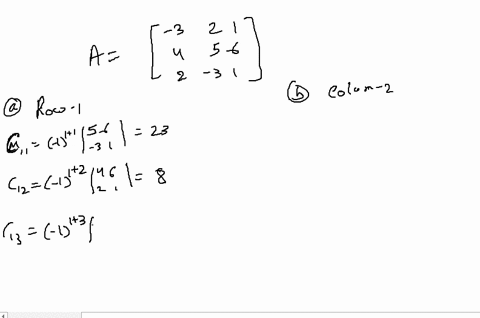 A = [ -3 2 1
4 5 -6
2 -3 1 ]
ⓐ Row-1
ⓑ Colum-2
C₁₁ = (-1)¹⁺¹ |5 -6
-3 1| = 23
C₁₂ = (-1)¹⁺² |4 6
2 1| = 8
C₁₃ = (-1)¹⁺³ |